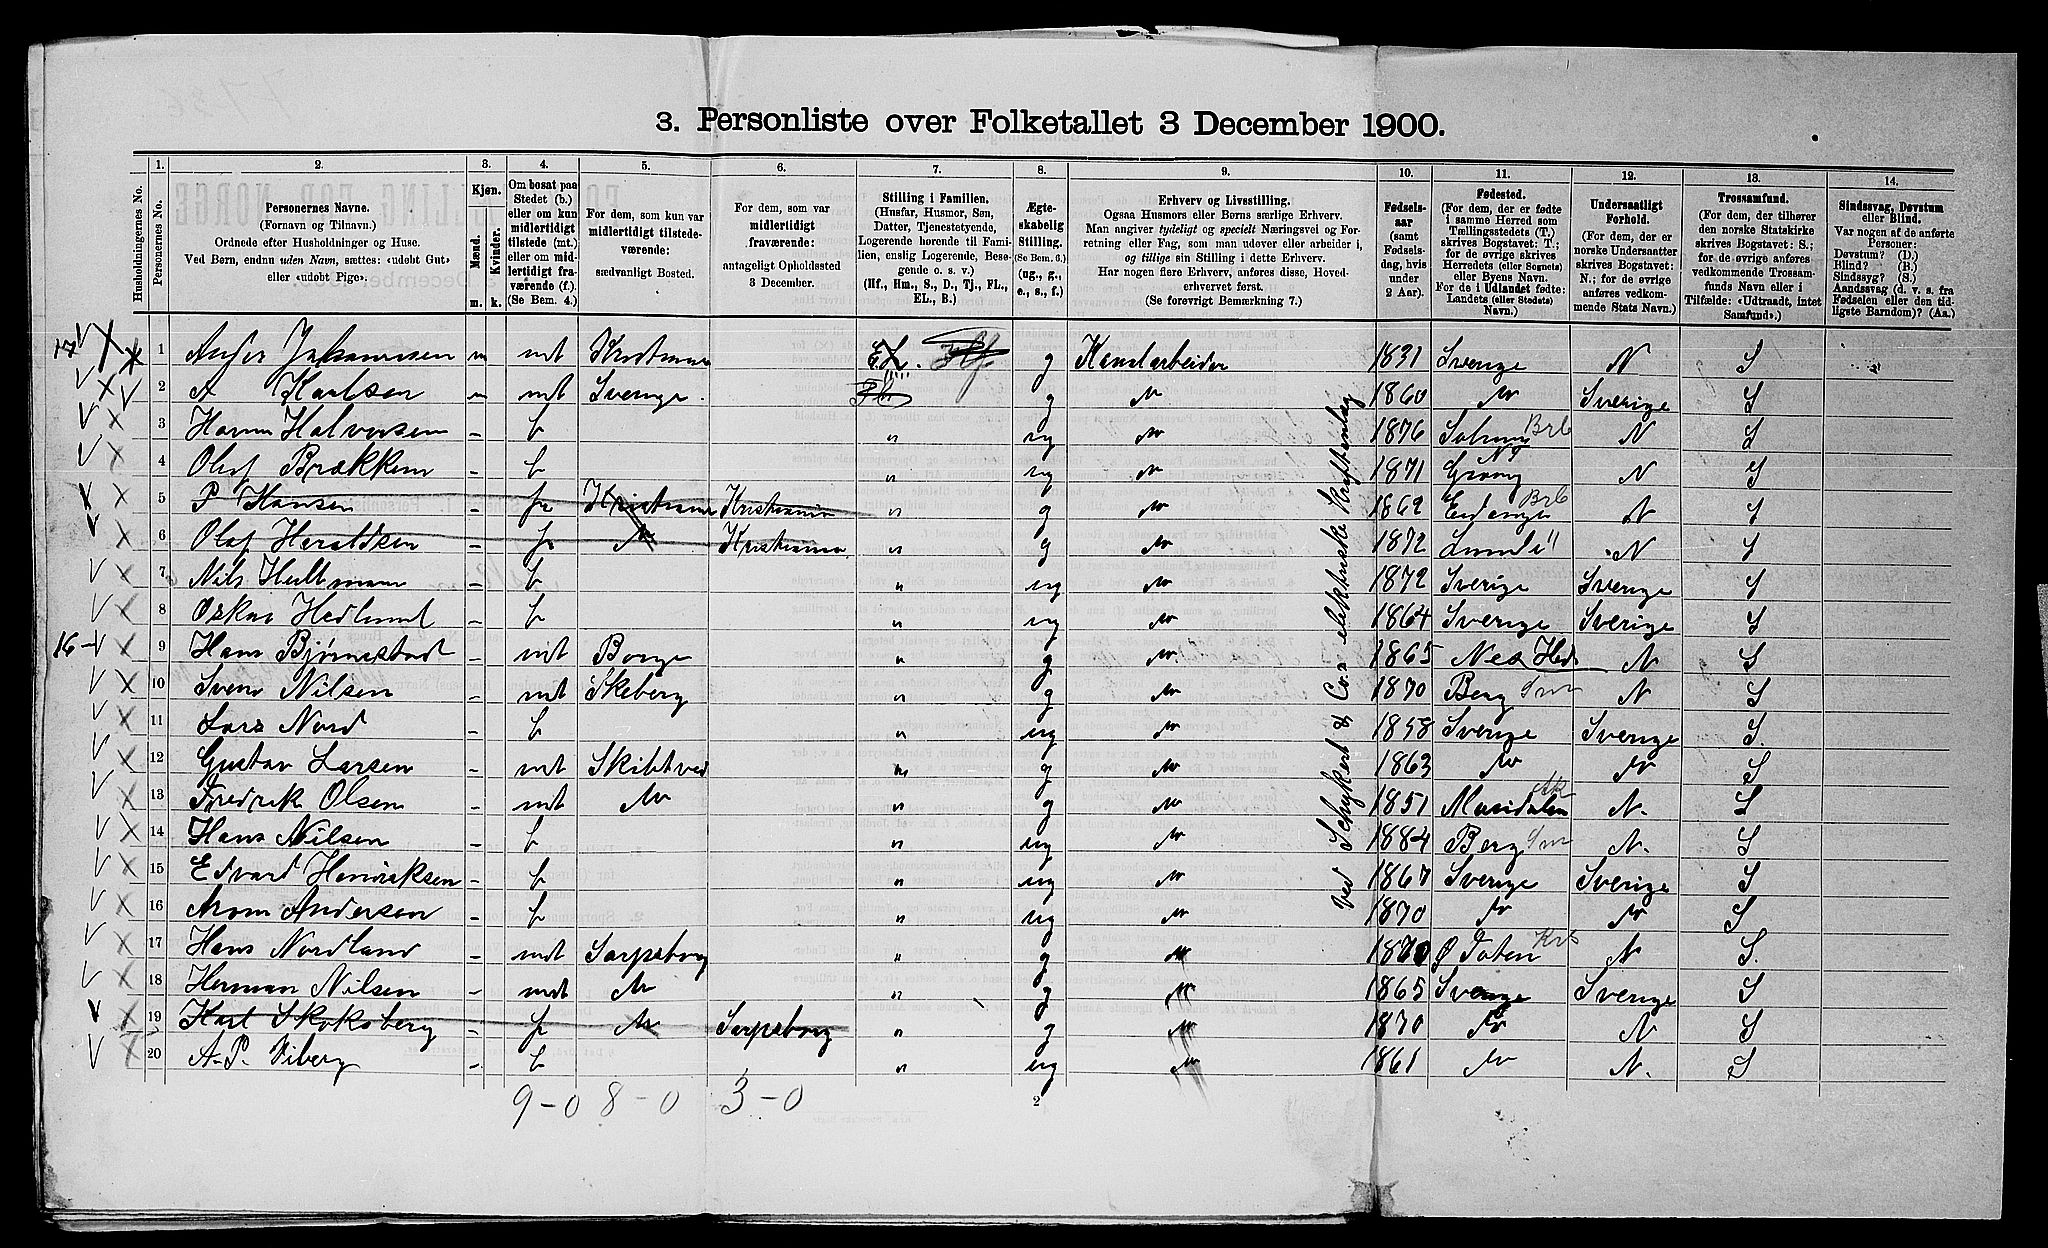 3. Personliste over Folketallet 3 December 1900.
Husholdningernes No.
1.
Personernes No.
2.
Personernes Navne.
(Fornavn og Tilnavn.)
Ordnede efter Husholdninger og Huse.
Ved Børn, endnu uden Navn, sættes: «udøbt Gut»
eller «udøbt Pige».
3.
Kjøn.
Mænd.
Kvinder.
m. k.
4.
Om bosat paa
Stedet (b.)
eller om kun
midlertidigt
tilstede (mt.)
eller om mid-
lertidigt fra-
værende (f.).
(Se Bem. 4.)
5.
For dem, som kun var
midlertidigt tilstede-
værende:
sædvanligt Bosted.
6.
For dem, som var
midlertidigt
fraværende:
antageligt Opholdssted
3 December.
7.
Stilling i Familien.
(Husfar, Husmor, Søn,
Datter, Tjenestetyende,
Logerende hørende til Fami-
lien, enslig Logerende, Besø-
gende o. s. v.)
(Hf., Hm., S., D., Tj., FL.,
EL., B.)
8.
Ægte-
skabelig
Stilling.
(Se Bem. 6.)
(ug., g.,
e., s., f.)
9.
Erhverv og Livsstilling.
Ogsaa Husmors eller Børns særlige Erhverv.
Man angiver tydeligt og specielt Næringsvei og For-
retning eller Fag, som man udover eller arbeider i,
og tillige sin Stilling i dette Erhverv.
Har nogen flere Erhverv, anføres disse, Hoved-
erhvervet først.
(Se forøvrigt Bemærkning 7.)
10.
Fødsels-
aar
(samt
Fødsels-
dag, hvis
under
2 Aar).
11.
Fødested.
(For dem, der er fødte
i samme Herred som
Tællingsstedets (T.)
skrives Bogstavet: T.;
for de øvrige skrives
Herredets (eller Sognets)
eller Byens Navn.
For de i Udlandet fødte:
Landets (eller Stedets)
Navn.)
12.
Undersaatligt
Forhold.
(For dem, der er
norske Undersaatter
skrives Bogstavet:
N.; for de øvrige
anføres vedkom-
mende Stats Navn.)
13.
Trossamfund.
(For dem, der tilhører
den norske Statskirke
skrives Bogstavet: S.;
for de øvrige anføres
vedkommende Trossam-
funds Navn eller i
Tilfælde: «Udtraadt, intet
Samfund».)
14.
Sindssvag, Døvstum
eller Blind.
Var nogen af de anførte
Personer:
Døvstum? (D.)
Blind? (B.)
Sindssyg? (S.)
Aandssvag (d. v. s. fra
Fødselen eller den tid-
ligste Barndom)? (Aa.)
1 Johannesen m mt EL. Hf. g Kanalarbeider 1831 Sverige N S
2 A Karlsen mt Sverige. g 1860 Sverige S
3 Halvorsen b " ug 1876 Brb N S
4 Olaf Brækken b " ug 1871 Grong NT N S
5 P Hansen f Kristiania " g 1862 Brb N S
6 Olaf Haraldsen f Kristiania " g 1872 Lunde " N S
7 Nils Hultman b " ug 1872 Sverige Sverige S
8 Oskar Hedlund b " ug 1864 Sverige Sverige S
16 9 Hans Bjørnestad mt Borge " g 1865 Nes Hed N S
10 Svend Nilsen mt Skeberg " g 1870 Berg Sm N S
11 Lars Nord b " ug 1858 Sverige Sverige S.
12 Gustav Larsen mt Skibtved " g 1863 S
13 Fredrik Olsen mt " g 1851 Maridalen Ak N. S
14 Hans Nilsen b " ug 1884 Berg Sm N. S
15 Edvard Henriksen b " ug 1867 Sverige Sverige S
16 Aron Andersen b " ug 1870 S
17 Hans Nordland mt Sarpsborg " g Ø Toten Krs N S.
18 Herman Nilsen mt " g 1865 Sverige Sverige S
19 Karl Skoksberg f Sarpsborg " g 1870 N S
20 A. P. Viberg b " ug 1861 N. S
ved Schukert & Co.s elektriske Kraftanlæg
9-0 8-0 3-0
2